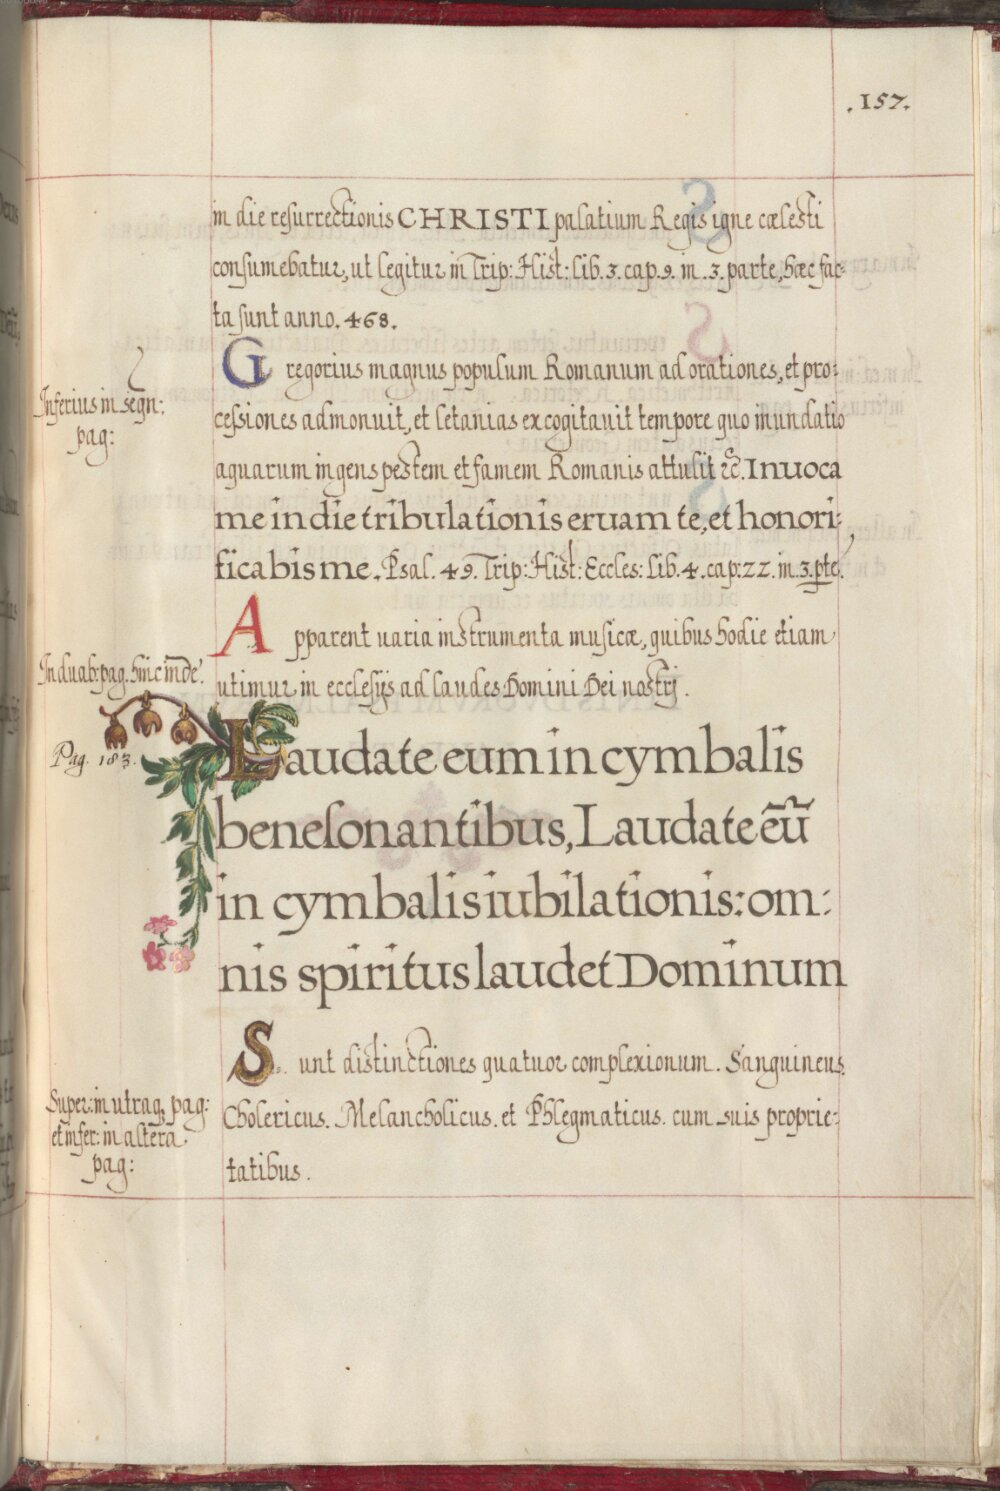 .157.
in die resurrectionis CHRISTI palatium Regis igne cælesti
consumebatur, ut legitur in Trip: Hist: lib. 3. cap. 9. in .3. parte, hæc fac-
ta sunt anno. 468.
Gregorius magnus populum Romanum ad orationes, et pro:
Inferius in seqn:
pag:
cessiones admonuit, et letanias excogitavit tempore quo inundatio
aquarum ingens pestem et famem Romanis attulit &c̃. Inuoca
me in die tribulationis eruam te, et honori:
ficabis me. Psal. 49. Trip: Hist: Eccles: lib. 4. cap: 22. in. 3. pte.
Apparent uaria instrumenta musicæ, quibus hodie etiam
In duab: pag. hinc inde.
utimur in ecclesijs ad laudes Domini Dei nostrj.
Pag. 183.
Laudate eum in cymbalis
benesonantibus, Laudate eū
in cymbalis iubilationis: om:
nis spiritus laudet Dominum
Sunt distinctiones quatuor complexionum. Sanguineus.
Super: in utraq, pag:
et infer: in altera
pag:
Cholericus. Melancholicus. et Phlegmaticus. cum suis proprie:
tatibus.